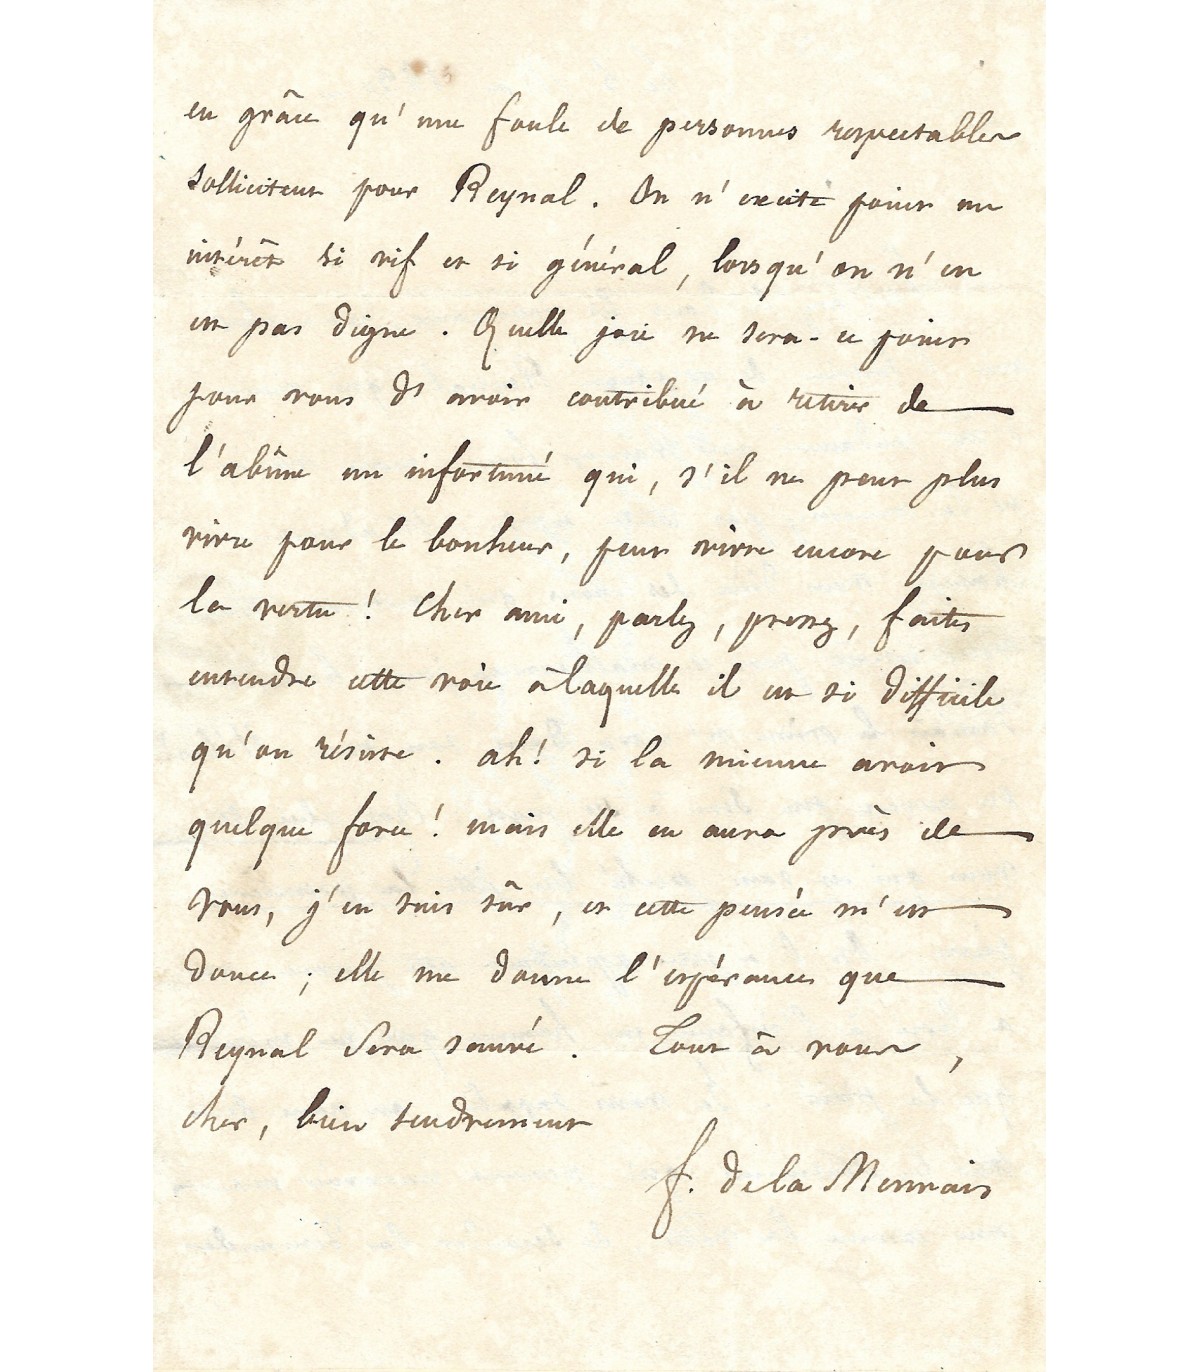 en grâce qu'une foule de personnes respectables
sollicitent pour Reynal. On n'excite point un
intérêt si vif et si général, lorsqu'on n'en
est pas digne. Quelle joie ne sera-ce point
pour vous d'avoir contribué à retirer de
l'abîme un infortuné qui, s'il ne peut plus
vivre pour le bonheur, peut vivre encore pour
la vertu! Cher ami, parlez, pressez, faites
entendre cette voix à laquelle il est si difficile
qu'on résiste. ah! si la mienne avoit
quelque force! mais elle en aura près de
vous, j'en suis sûr, et cette pensée m'est
douce; elle me donne l'espérance que
Reynal sera sauvé. Tout à vous,
cher, bien tendrement
f. de la Mennais